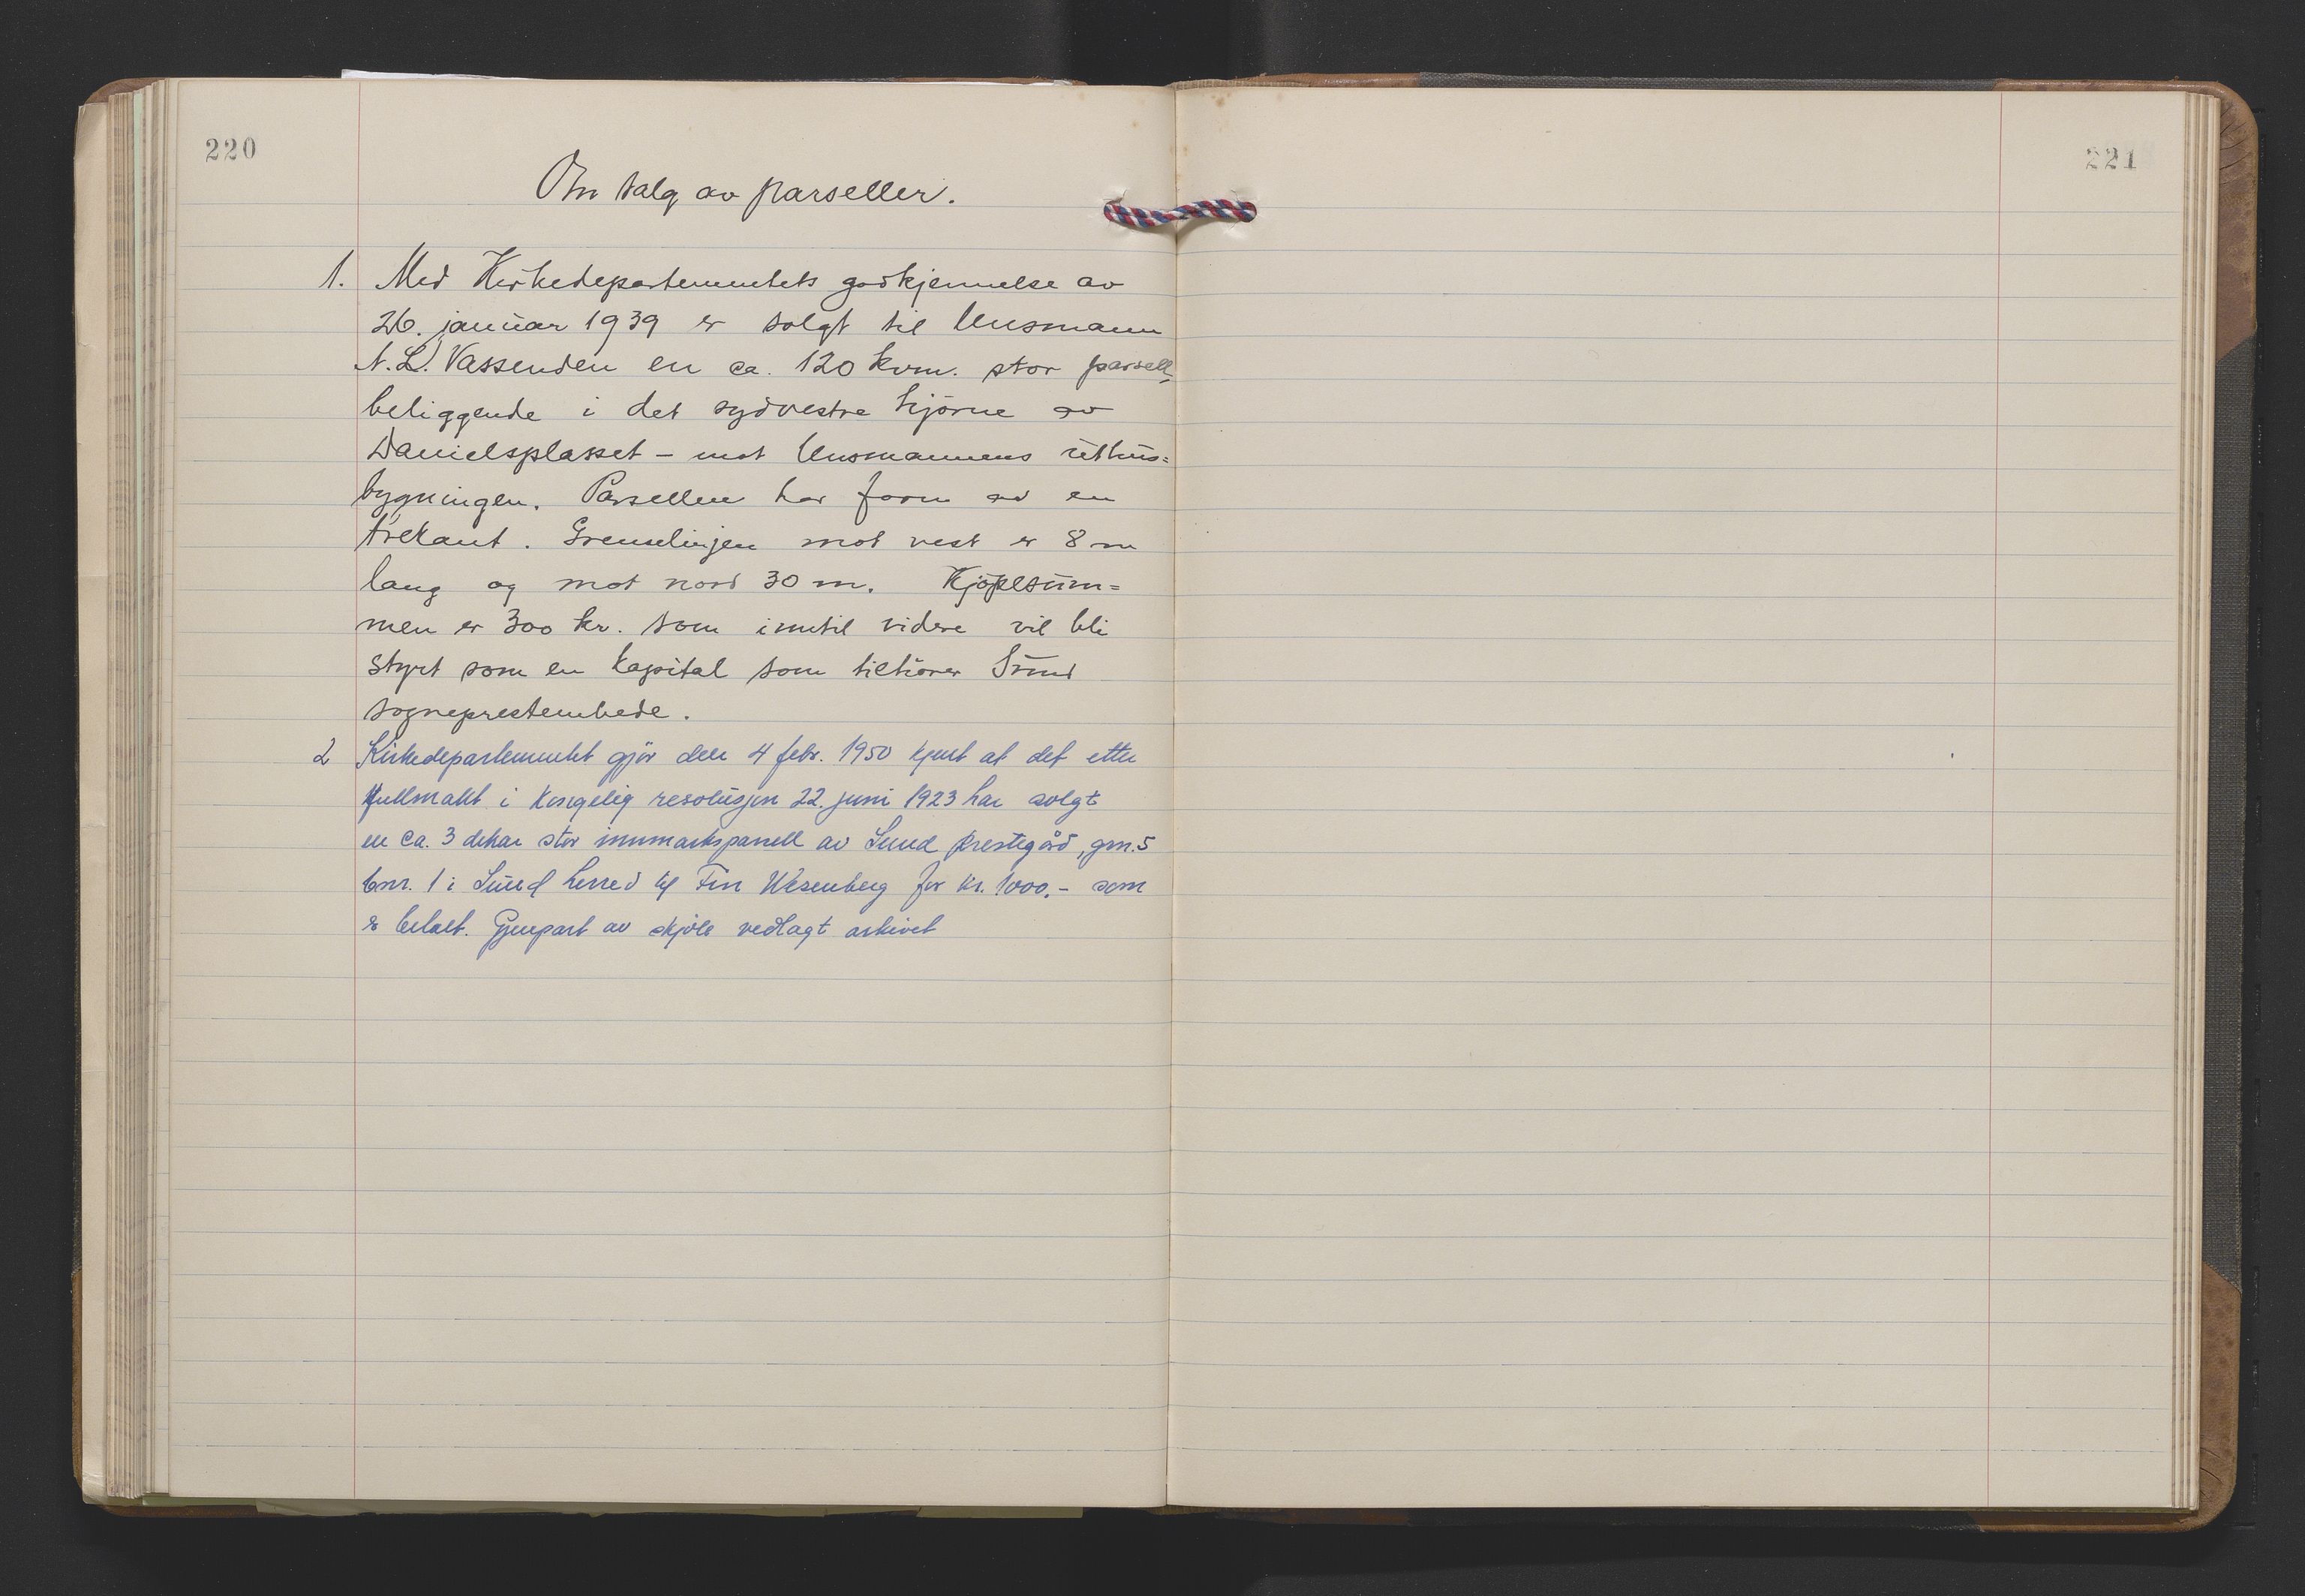 220
Om salg av parseller.
1. Med Kirkedepartementets godkjennelse av
26. januar 1939 er solgt til lensmann
N. L. Vassenden en ca. 120 kvm. stor parsell,
beliggende i det sydvestre hjørne av
Danielsplasset - mot lensmannens uthus=
bygningen. Parsellen har form av en
trekant. Grenselinjen mot vest er 8 m
lang og mot nord 30 m. Kjøpesum=
men er 300 kr. som inntil videre vil bli
styrt som en kapital som tilhører Sund
sogneprestembede.
2 Kirkedepartementet gjør den 4 febr. 1950 kjent at det etter
fullmakt i kongelig resolusjon 22. juni 1923 har solgt
en ca. 3 dekar stor innmarksparsell av Sund prestegård, gnr. 5
bnr. 1 i Sund herred til Finn Wesenberg for kr. 1000.- som
er betalt. Gjenpart av skjøte vedlagt arkivet
221